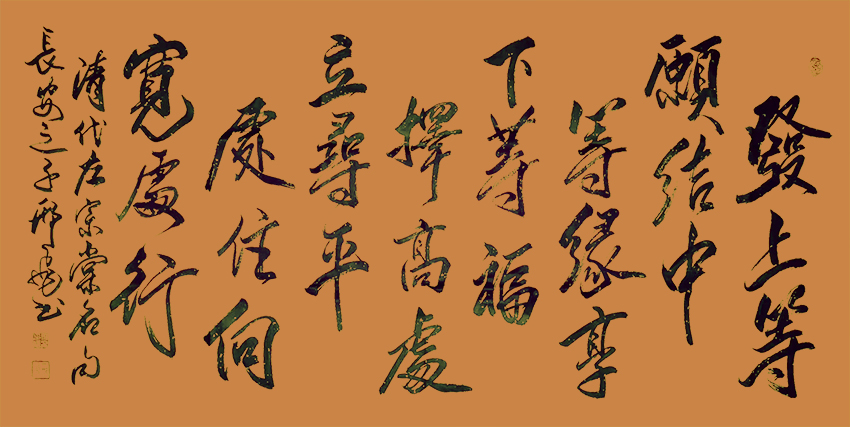 發上等
願結中
等緣享
下等福
擇高處
立尋平
處住向
寬處行
清代左宗棠名句
長安